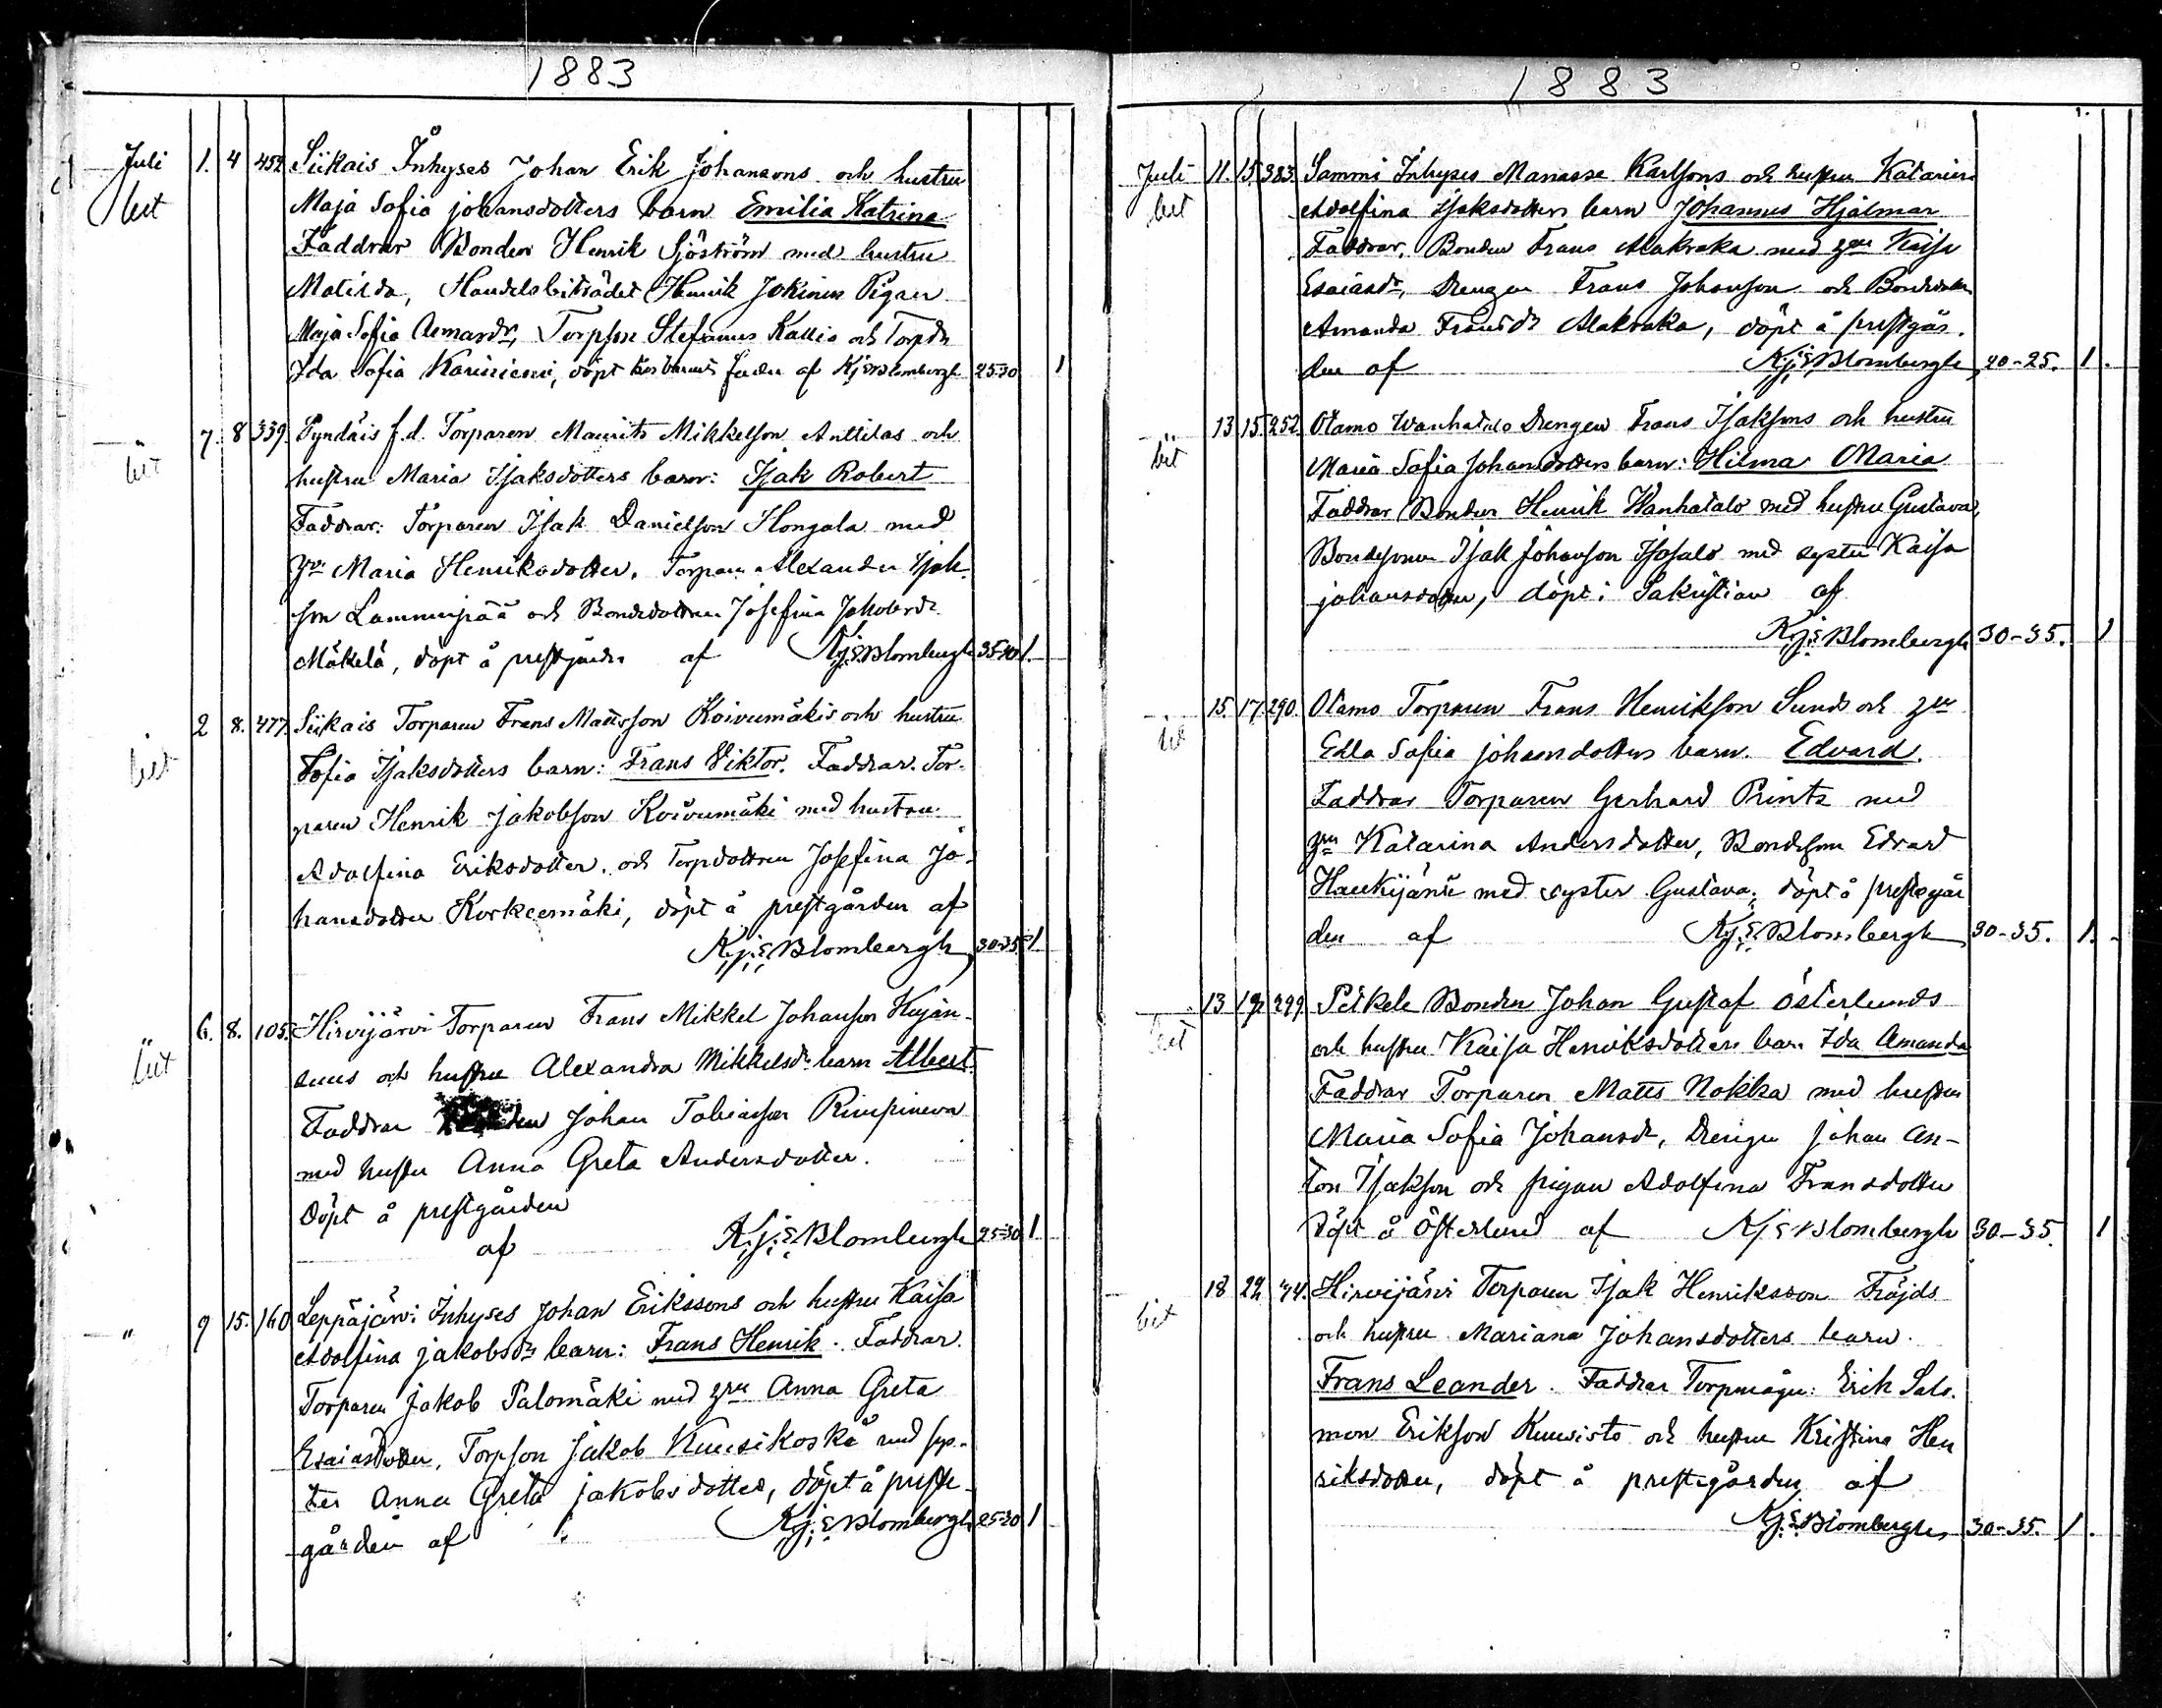 1883
Juli 1. 4 452 Siikais Inhyses Johan Erik Johansons och hustru
bet Maja Sofia johansdotters barn Emilia Katrina
Faddrar Bonden Henrik Sjöström med hustru
Matilda, Handelsbiträdet Henrik Jokinen Pigan
Maja Sofia Torpson Stefanus Kallio och Torpdr
Ida Sofia döpt hos barnets fader af KjEBlombergh 25-30 1
7. 8 339. f.d. Torparen Maurits Mikkelson Anttilas och
bet hustru Maria Isaksdotters barn: Isak Robert
Faddrar: Torparen Isak Danielson Hongala med
Maria Henriksdotter. Torparen Alexander Isak-
son Lamminpää och Bondedottren Josefina Jakobsdr
Mäkelä, döpt å prestgården af KjEBlombergh 35-40 1.
2 8. 477. Siikais Torparen Frans Mattsson Koivumäkis och hustru
bet Sofia Isaksdotters barn: Frans Viktor. Faddrar. Tor-
paren Henrik Jakobson Koivumäki med hustru
Adolfina Eriksdotter. och Torpdottren Josefina Jo-
hansdotter Korkeemäki, döpt å prestgården af
Kj.E.Blombergh 30-35. 1
6. 8. 105. Hirvijärvi Torparen Frans Mikkel Johanson Kujan-
bet suus och hustru Alexandra Mikkelsdr barn Albert.
Faddrar Johan Tobiasson
med hustru Anna Greta Andersdotter.
Döpt å prestgården
af Kj.E.Blombergh 25-30 1
" 9 15. 160 Leppäjärvi Inhyses Johan Erikssons och hustru Kaisa
Adolfina jakobsdr barn: Frans Henrik. Faddrar.
Torparen Jakob Palomäki med Anna Greta
Esaiasdotter, Torpson Jakob Kuusikoski med sys-
ter Anna Greta jakobsdotter, döpt å preste-
gården af Kj.E.Blombergh 25-30 1
1883
Juli 11. 15. 383. Sammi Inhyses Manasse Karlsons och hustru Katarina
bet Adolfina Isaksdotters barn Johannes Hjalmar
Faddrar. Bonden Frans Alakraka med Kaisa
Esaiasdr, Drengen Frans Johanson och Bondedottren
Amanda Fransdr Alakraka, döpt å prestgår-
den af Kj.E.Blombergh 20-25. 1.
13 15. 252. Otamo Wanhatalo Drengen Frans Isaksons och hustru
bet Maria Sofia Johansdotters barn: Hilma Maria
Faddrar Bonden Henrik Wanhatalo med hustru Gustava,
Bondesonen Isak Johanson Isosalo med syster Kaisa
johansdotter, döpt i Sakristian af
Kj.E.Blombergh 30-35. 1
15. 17. 290. Otamo Torparen Frans Henrikson Sunds och
bet Edla Sofia johansdotters barn. Edvard.
Faddrar Torparen Gerhard Printz med
Katarina Andersdotter, Bondeson Edvard
Haukijänti med syster Gustava, döpt å prestegår
den af Kj.E.Blombergh 30-35. 1.
13 19. 299. Petkele Bonden Johan Gustaf Österlunds
bet och hustru Kaisa Henriksdotters barn Ida Amanda
Faddrar Torparen Matts Nokka med hustru
Maria Sofia Johansdr, Drengen johan An-
ton Isakson och pigan Adolfina Fransdotter
Döpt å Österlund af KjEBlombergh 30-35. 1
18 22. 74. Hirvijärvi Torparen Isak Henriksson Fröjds
bet och hustru Mariana Johansdotters barn.
Frans Leander. Faddrar Torpmågen: Erik Salo-
mon Erikson Kuusisto och hustru Kristina Hen
riksdotter, döpt å prestgården af
Kj.E.Blombergh 30-35. 1.